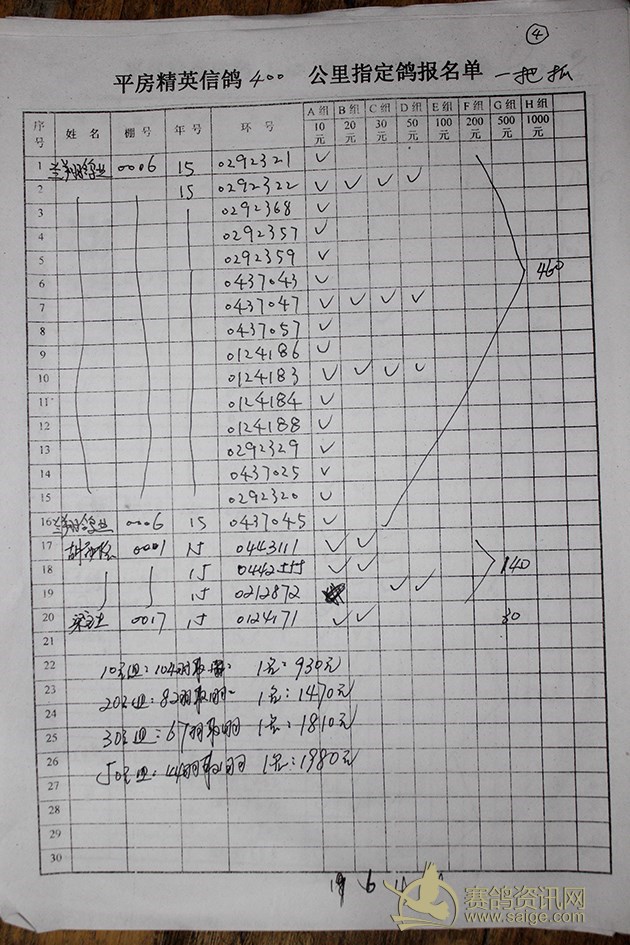 ④
平房精英信鸽 400 公里指定鸽报名单 一把抓
序号 姓名 棚号 年号 环号 A组10元 B组20元 C组30元 D组50元 E组100元 F组200元 G组500元 H组1000元
1 0006 15 0292321 ✓
2 15 0292322 ✓ ✓ ✓ ✓
3 0292368 ✓
4 0292357 ✓
5 0292359 ✓
6 0437043 ✓ 460
7 0437047 ✓ ✓ ✓ ✓
8 0437057 ✓
9 0124186 ✓
10 0124183 ✓ ✓ ✓ ✓
11 0124184 ✓
12 0124188 ✓
13 0292329 ✓
14 0437025 ✓
15 0292320 ✓
16 0006 15 0437045 ✓
17 0001 15 0443111 ✓ ✓
18 15 0442555 ✓ ✓ 140
19 15 0212872 ✓ ✓
20 0017 15 0124171 ✓ ✓ 30
21
22 10元组:104羽取 1名:930元
23 20元组:82羽取 1名:1470元
24
25 30元组:67羽取 1名:1810元
26 50元组:44羽取1羽 1名:1980元
27
28
29
30
赛鸽资讯网
www.saige.com